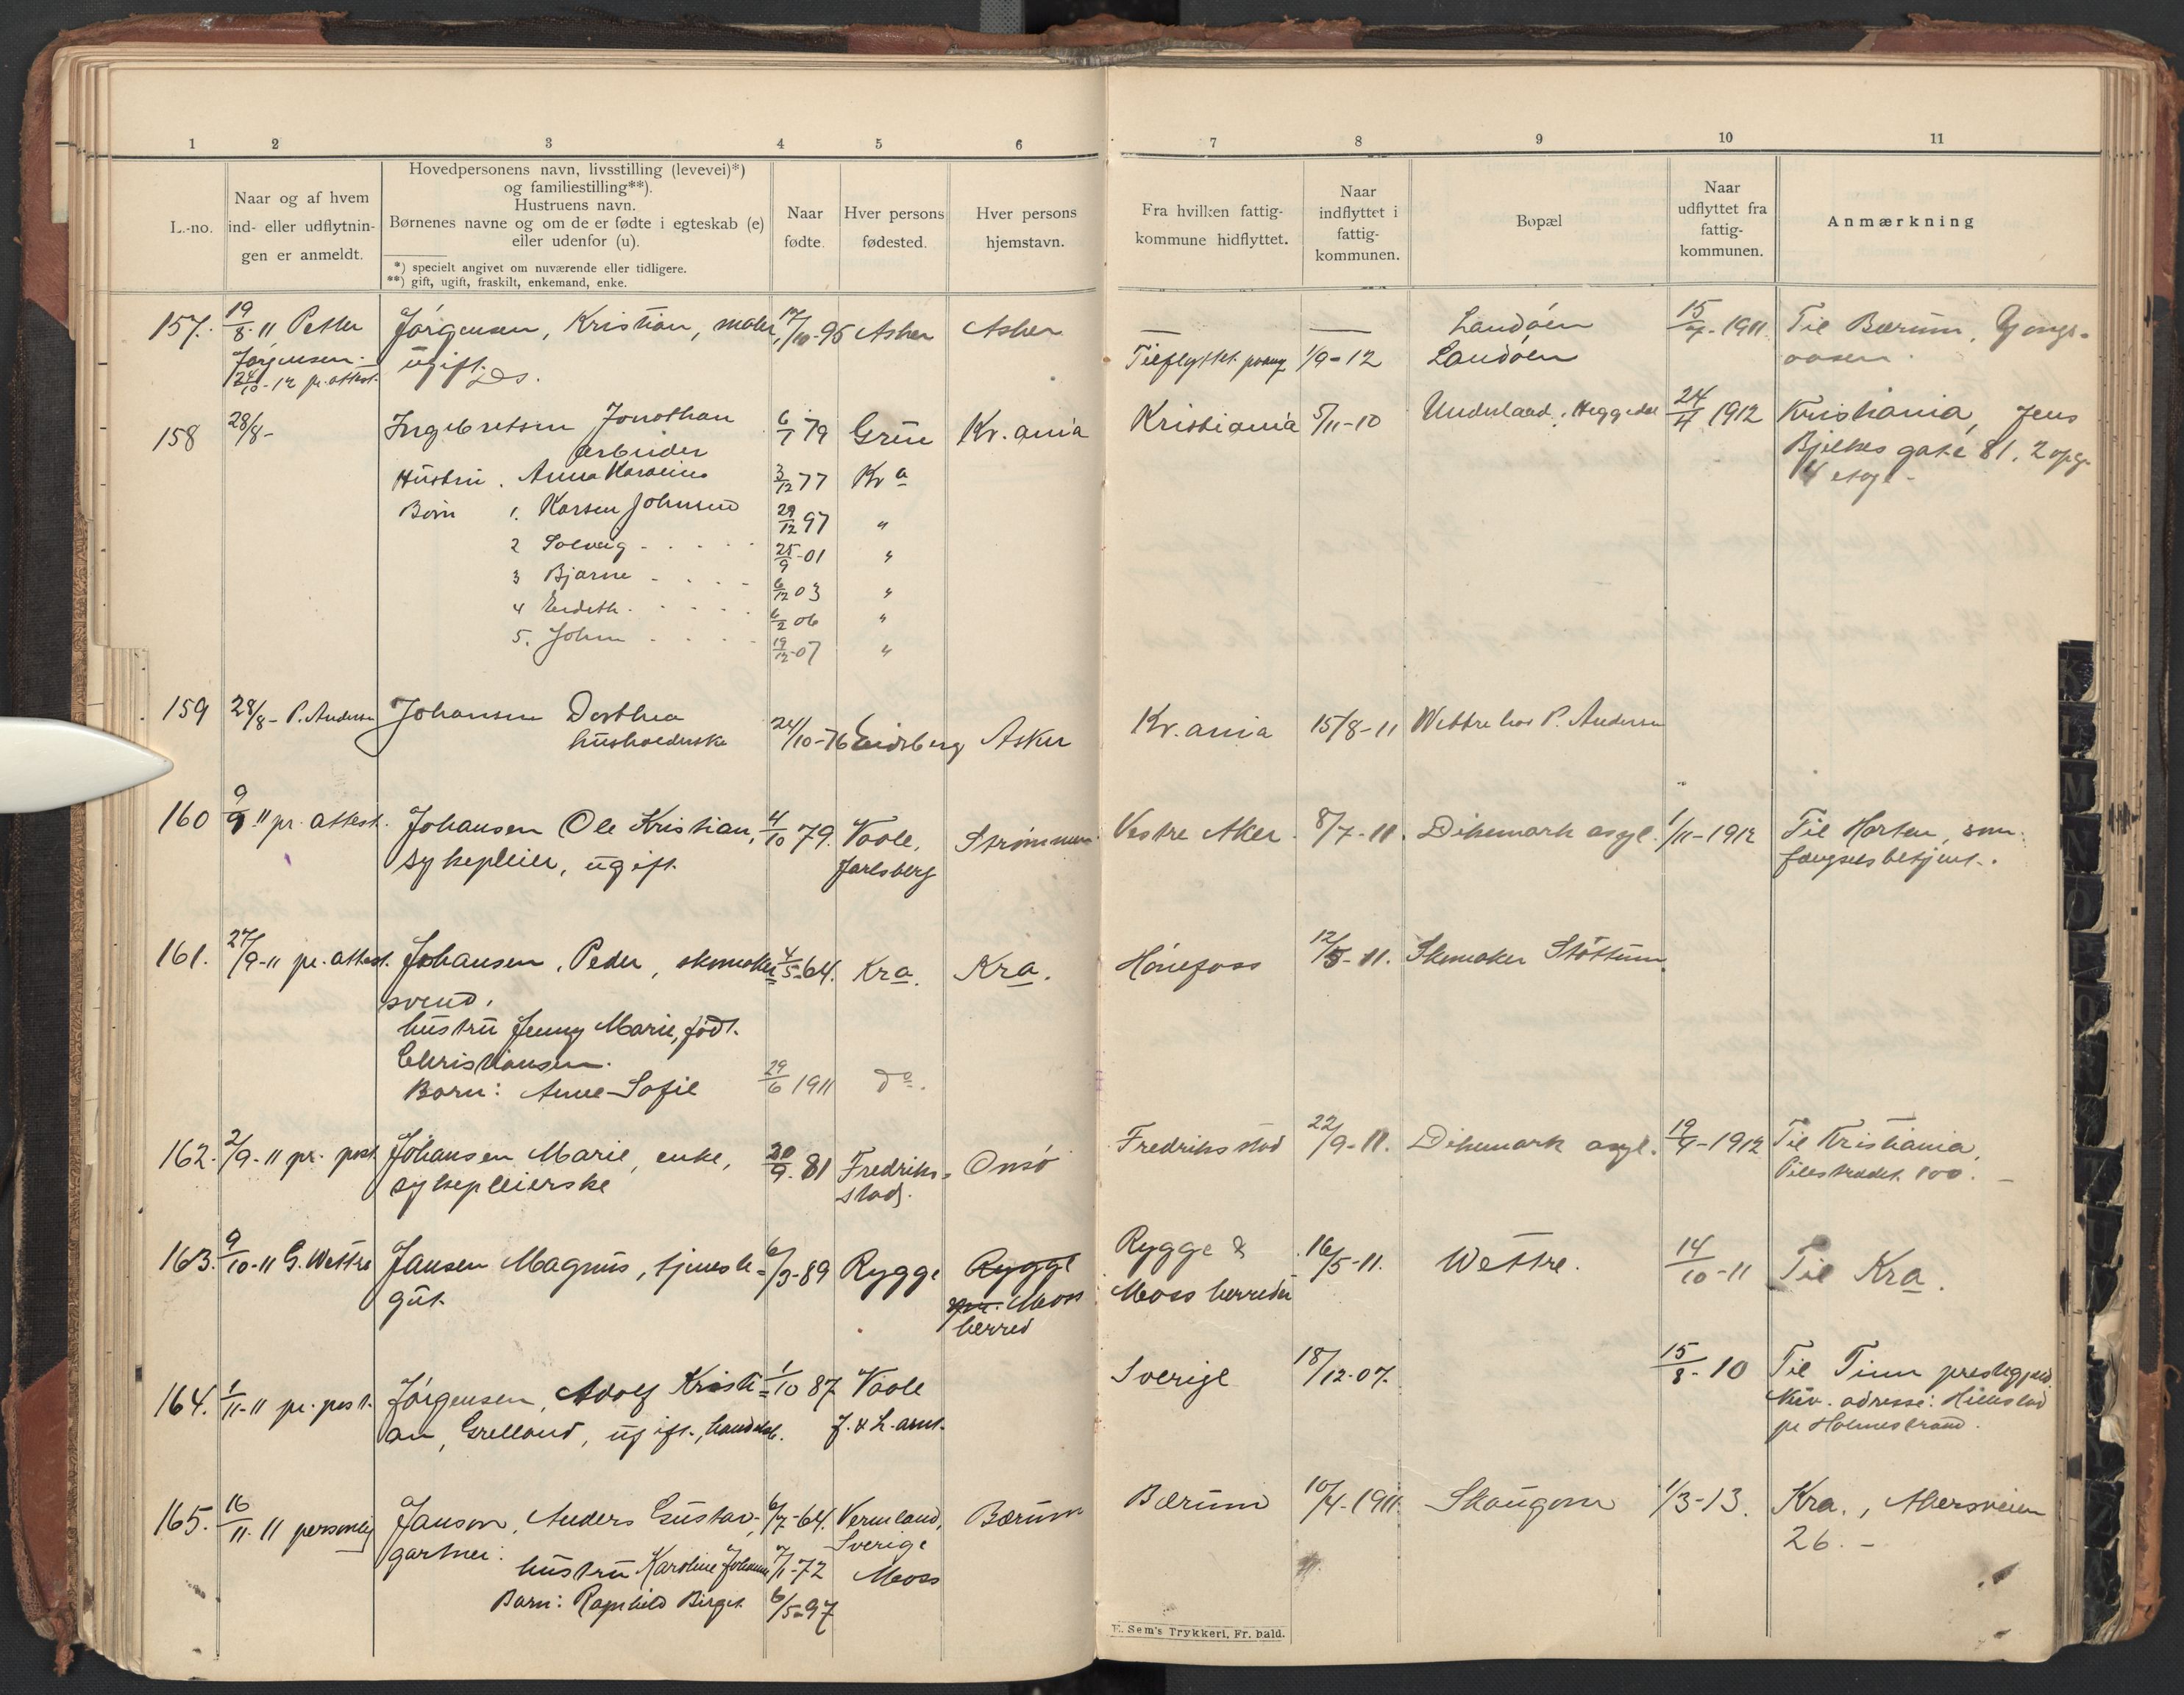 1 2 3 4 5 6 7 8 9 10 11
L.-no.
Naar og af hvem
ind- eller udflytnin-
gen er anmeldt.
Hovedpersonens navn, livsstilling (levevei)*)
og familiestilling**).
Hustruens navn.
Børnenes navne og om de er fødte i egteskab (e)
eller udenfor (u).
*) specielt angivet om nuværende eller tidligere.
**) gift, ugift, fraskilt, enkemand, enke.
Naar
fødte.
Hver persons
fødested.
Hver persons
hjemstavn.
Fra hvilken fattig-
kommune hidflyttet.
Naar
indflyttet i
fattig-
kommunen.
Bopæl
Naar
udflyttet fra
fattig-
kommunen.
Anmærkning
157. 19/8-11 Petter Jörgensen, Kristian, maler, 17/10-95 Asker Asker — — Landöen 15/7-1911 Til Bærum,
Jörgensen. ugift. Tilflyttet 1/9-12 Landöen
24/10-12 pr. attest. Ds.
158 28/8- Ingebretsen Jonathan 6/1 79 Grue Kr.ania Kristiania 5/11-10 Underland, Heggedal 24/4 1912 Kristiania, Jens
arbeider Bjelkes gate 81, 2 opg.
Hustru. Anna Karoline 3/12 77 Kra 4 etag-
Børn 1. Karsen Johnsen 29/12 97 "
2 Solveig - - - - 25/9-01 "
3 Bjarne - - - - 6/12 03 "
4 - - - - 6/2 06 "
5. John - - - 19/12-07 "
159 28/8- P. Andersen Johansen Dorthea 24/10-76 Eidsberg Asker Kr.ania 15/8-11 Wettre hos P. Andersen
husholderske
160 9/9 11 pr. attest. Johansen Ole Kristian, 4/10 79. Vaale, Strömmen Vestre Aker. 8/7-11. Dikemark asyl. 1/11-1912 Til Horten, som
sykepleier, ugift. Jarlsberg fængselsbetjent.
161. 27/9-11 pr. attest. Johansen, Peder, skomaker= 4/5-64. Kra. Kra. Hönefoss 12/5-11. Skomaker Stöttum.
svend.
hustru Jenny Marie, födt.
Christiansen.
Barn: Anne-Sofie 29/6 1911 do.
162. 2/9-11 pr. post Johansen Marie, enke, 20/9-81 Fredriks= Onsö Fredriksstad 22/9-11. Dikemark asyl. 19/9-1912 Til Kristiania,
sykepleierske stad. Pilestrædet 100. -
163. 9/10-11 G. Wettre Jansen Magnus, tjeneste= 6/3-89 Rygge Rygge Rygge & 16/5-11. Wettre. 14/10-11 Til Kra.
gut. Moss Moss herreder
herred
164. 1/11-11 pr. post. Jörgensen, Adolf Kristi= 1/10 87 Vaale Sverige 18/12-07. 15/8-10 Til Tinn prestegjeld
an, Grelland, ugift, J. & L. amt. Nuv. adresse: Hillestad
pr Holmestrand.
165. 16/11-11 personlig Janson, Anders Gustav- 6/7-64. Vermland, Bærum Bærum 10/4-1911. Skaugum 1/3-13. Kra., Akersveien
gartner. Sverige 26. -
hustru Karoline 7/1-72 Moss
Barn: Ragnhild Birgit 6/5-97
E. Sem's Trykkeri, Fr. hald.